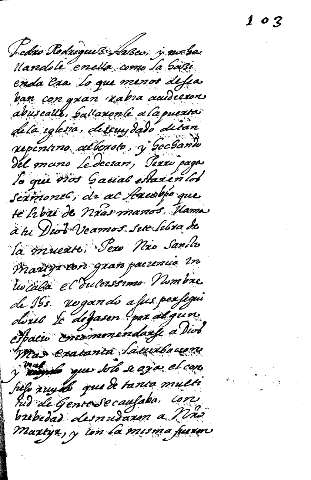 103
Pedro Rodriguez Arbez, y no ha
llandole en ella como la hazi
enda era lo que menos desea
ban con gran rabia acudieron
abuscalle, hallaronle a la puerta
de la iglesia, descuydado de tan
repentino alboroto, y hechando
del mano le decian, Perro paga
lo que nos hacias estar en los
sermones, di al Arcobpo que
te libre de nras manos. llama
à tu Dios Veamos, si te libra de
la muerte. Pero Nro Sancto
Martyr con gran paciencia in
vocaba el dulcissimo Nombre
de Ihs. rogando a sus persegui
dores le dejasen por algun
espacio encomendarse a Dios
Mas era tanta la turbacion
y que solo se oya el con
fuso ruydo que de tanta multi
tud de Gente se causaba, con
brebedad desnudaron a Nro
Martyr, y con la misma fueron